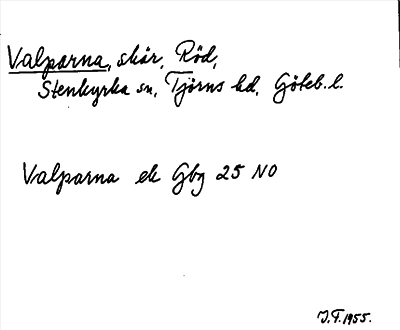 Valparna, skär, Röd,
Stenkyrka sn, Tjörns hd, Göteb. l.
Valparna ek Gbg 25 NO
J.F. 1955.